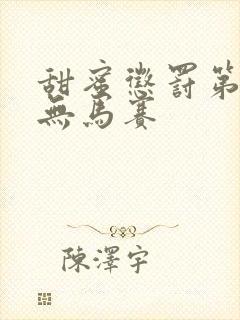 甜蜜懲罰第
無馬賽
陳澤宇